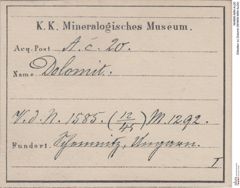 K. K. Mineralogisches Museum.
Acq. Post A. c. 20.
Name Dolomit.
V. d. N. 1585. (12/45) M. 1292.
Fundort. Schemnitz, Ungarn.
I